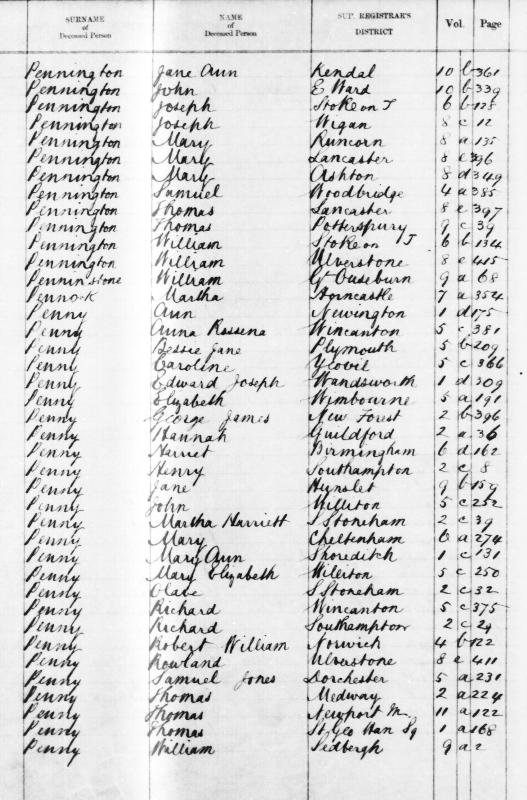 SURNAME of Deceased Person NAME of Deceased Person SUP. REGISTRAR'S DISTRICT Vol. Page
Pennington Jane Ann Kendal 10 b 361
Pennington John E Ward 10 b 339
Pennington Joseph Stoke on T 6 b 128
Pennington Joseph Wigan 8 c 12
Pennington Mary Runcorn 8 a 135
Pennington Mary Lancaster 8 e 396
Pennington Mary Ashton 8 d 349
Pennington Samuel Woodbridge 4 a 385
Pennington Thomas Lancaster 8 e 397
Pennington Thomas Potterspury 9 c 39
Pennington William Stoke on T 6 b 134
Pennington William Ulverstone 8 e 415
Penninstone William Gt Ouseburn 9 a 68
Pennock Martha Horncastle 7 a 354
Penny Ann Newington 1 d 175
Penny Anna Rossena Wincanton 5 c 381
Penny Bessie Jane Plymouth 5 b 209
Penny Caroline Yeovil 5 c 366
Penny Edward Joseph Wandsworth 1 d 309
Penny Elizabeth Wimbourne 5 a 191
Penny George James New Forest 2 b 396
Penny Hannah Guildford 2 a 36
Penny Harriet Birmingham 6 d 162
Penny Henry Southampton 2 c 8
Penny Jane Hunslet 9 b 159
Penny John Williton 5 c 252
Penny Martha Harriett S Stoneham 2 c 39
Penny Mary Cheltenham 6 a 274
Penny Mary Ann Shoreditch 1 c 131
Penny Mary Elizabeth Williton 5 c 250
Penny Olave S Stoneham 2 c 32
Penny Richard Wincanton 5 c 375
Penny Richard Southampton 2 c 24
Penny Robert William Norwich 4 b 122
Penny Rowland Ulverstone 8 e 411
Penny Samuel Jones Dorchester 5 a 231
Penny Thomas Medway 2 a 224
Penny Thomas Newport M. 11 a 122
Penny Thomas St Geo Han Sq 1 a 168
Penny William Sedbergh 9 a 2